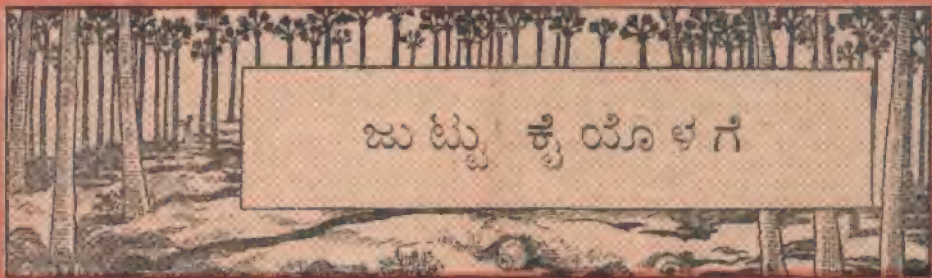 ಜುಟ್ಟು ಕೈಯೊಳಗೆ